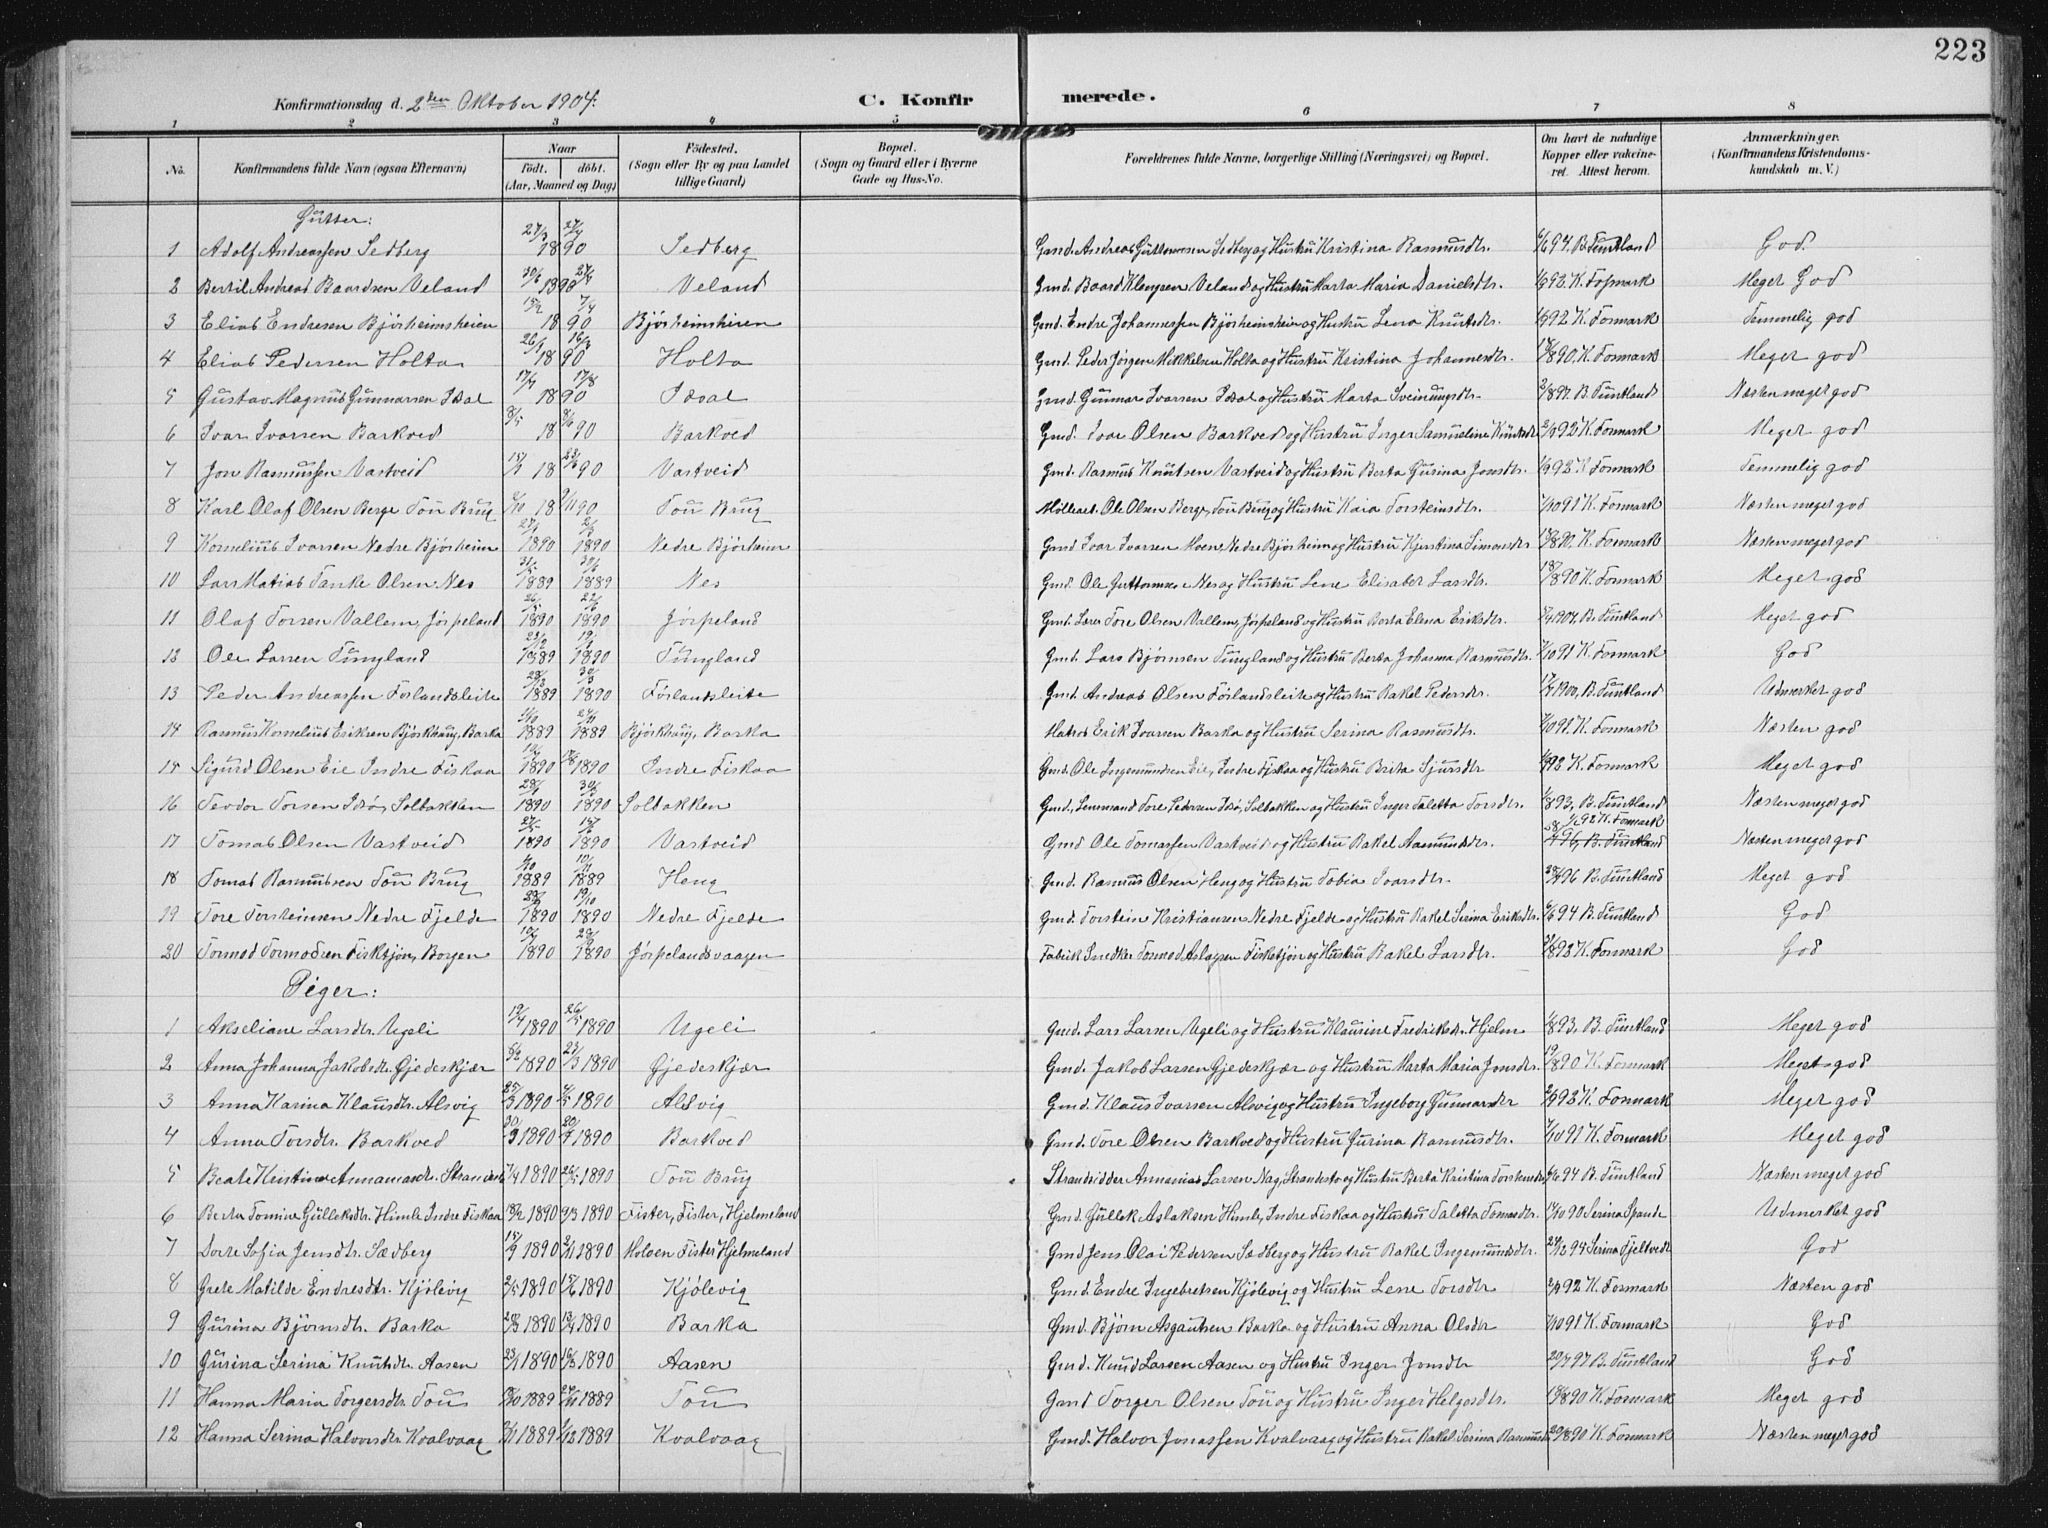 223
Konfirmationsdag d. 2den Oktober 1904. C. Konfirmerede.
1 2 3 4 5 6 7 8
No. Konfirmandens fulde Navn (ogsaa Efternavn) Naar Födt. döbt. (Aar, Maaned og Dag) Födested. (Sogn eller By og paa Landet tillige Gaard) Bopæl. (Sogn og Gaard eller i Byerne Gade og Hus-No. Forældrenes fulde Navne, borgerlige Stilling (Næringsvei) og Bopæl. Om havt de naturlige Kopper eller vakcineret. Attest herom. Anmærkninger. (Konfirmandens Kristendomskundskab m. V.)
Gutter:
1 Adolf Andreassen Sedberg 1890 Sedberg Gmd. Andreas Guttormsen Sedberg og Hustru Kristina Rasmusdtr. 6/6 94. B. Tuntland God.
2 Bertil Andreas Baardsen Veland 1890 Veland Gmd. Baard Klemsen Veland og Hustru Marta Maria Danielsdtr. 92. K. Fosmark Meget God
3 Elias Endresen Björheimsheien 15/2 7/4 1890 Björheimsheien Gmd. Endre Johannessen Björheimsheien og Hustru Lena Knutsdtr. 92 K. Fosmark Temmelig god
4 Elias Pedersen Holta 26/1 16/3 1890 Holta Gmd. Peder Jörgen Mikkelsen Holta og Hustru Kristina Johannesdtr. 18/8 90. K. Fosmark Meget god
5 Gustav Magnus Gunnarsen Idsal 17/7 17/8 1890 Idsal Gmd. Gunnar Ivarsen Idsal og Hustru Marta Sveinungsdtr. B. Tuntland Næsten meget god
6 Ivar Ivarsen Barkved 8/5 8/6 1890 Barkved Gmd. Ivar Olsen Barkved og Hustru Inger Samueline Knutsdtr. 2/9 92 K. Fosmark Meget god
7 Jon Rasmussen Vastveid 1890 Vastveid Gmd. Rasmus Knutsen Vastveid og Hustru Berta Gurina Jonsdtr. 92 K. Fosmark Temmelig god
8 Karl Olaf Olsen Berge Tou Brug 1890 Tou Brug Möllearb. Ole Olsen Berge, Tou Brug og Hustru Kaia Torsteinsdtr. 7/10 91 K. Fosmark Næsten meget god
9 Kornelius Ivarsen Nedre Björheim 1890 1890 Nedre Björheim Gmd. Ivar Ivarsen Moen, Nedre Björheim og Hustru Kjerstina Simonsdtr 18/8 90. K. Fosmark Næsten meget god
10 Lars Matias Tanke Olsen Nes 1889 1889 Nes Gmd. Ole Guttormsen Nes og Hustru Lene Elisabet Larsdtr. 18/8 90 K. Fosmark Meget god
11 Olaf Torsen Vallem, Jörpeland 1890 1890 Jörpeland Gmd. Lærer Tore Olsen Vallem, Jörpeland og Hustru Berta Elena Eriksdtr. 1904. B. Tuntland Meget god
12 Ole Larsen Tungland 1889 1890 Tungland Gmd. Lars Björnsen Tungland og Hustru Berta Johanna Rasmusdtr. 7/10 91 K. Fosmark God
13 Peder Andreassen Förlandsleite 1889 1890 Förlandsleite Gmd. Andreas Olsen Förlandsleite og Hustru Rakel Pedersdtr. 1900, B. Tuntland Udmerket god
14 Rasmus Kornelius Eriksen Björkhaug, Barka 1889 1889 Björkhaug, Barka Matros Erik Ivarsen Barka og Hustru Serina Rasmusdtr. 7/10 91. K. Fosmark Næsten god
15 Sigurd Olsen Eie Indre Fiskaa 1890 1890 Indre Fiskaa Gmd. Ole Ingemundsen Eie, Indre Fiskaa og Hustru Brita Sjursdtr 92 K. Fosmark Meget god
16 Teodor Torsen Idsö, Solbakken 1890 1890 Solbakken Gmd. Lensmand Tore Pedersen Idsö, Solbakken og Hustru Inger Taletta Torsdtr. 93, B. Tuntland Næsten meget god
17 Tomas Olsen Vastveid 1890 1890 Vastveid Gmd Ole Tomassen Vastveid og Hustru Rakel Aasmundsdtr. 92 K. Fosmark 96, B. Tuntland Næsten meget god
18 Tomas Rasmussen Tou Brug 1889 1889 Heng Gmd. Rasmus Olsen Heng og Hustru Tobia Ivarsdtr. 96 B. Tuntland Meget god
19 Tore Torsteinsen Nedre Fjelde 1890 19/10 1890 Nedre Fjelde Gmd. Torstein Kristiansen Nedre Fjelde og Hustru Rakel Serina Eriksdtr. 6/6 94 B. Tuntland God
20 Tormod Tormodsen Fisktjön, Borgen 1890 1890 Jörpelandsvaagen Fabrik Snedker Tormod Aslagsen Fisketjön og Hustru Rakel Larsdtr. K. Fosmark God
Piger:
1 Akseliane Larsdtr. Ugeli 19/4 1890 26/5 1890 Ugeli Gmd. Lars Larsen Ugeli og Hustru Klausine Fredriksdtr. Hjelm 93. B. Tuntland Meget god
2 Anna Johanna Jakobsdtr. Gjedeskjær 5/2 1890 23/3 1890 Gjedeskjær Gmd. Jakob Larsen Gjedeskjær og Hustru Marta Maria Jonsdtr. 19/8 90 K. Fosmark Meget god
3 Anna Karina Klausdtr. Alsvig 25/3 1890 4/5 1890 Alsvig Gmd. Klaus Ivarsen Alsvig og Hustru Ingeborg Gunnarsdtr 2/9 92 K. Fosmark Meget god
4 Anna Torsdtr. Barkved 30/3 1890 20/4 1890 Barkved Gmd. Tore Olsen Barkved og Hustru Gurina Rasmusdtr. 7/10 91 K. Fosmark Meget god
5 Beate Kristine Annaniasdtr. 7/4 1890 26/5 1890 Tou Brug Strandsidder Annanias Larsen Nag, Strandesto og Hustru Berta Kristina Torsteinsdtr 6/6 94 B. Tuntland Næsten meget god
6 Berta Tomine Gulleksdtr. Himle Indre Fiskaa 1890 9/3 1890 Fister, Fister, Hjelmeland Gmd. Gullek Aslaksen Himle, Indre Fiskaa og Hustru Taletta Tomasdtr. 90 Serina Spande Udmerket god
7 Dorte Sofia Jensdtr. Sædberg 15/9 1890 2/11 1890 Holven Fister Hjelmeland Gmd Jens Olai Pedersen Sædberg og Hustru Rakel Ingemundsdtr. 29/12 94 Serina Fjeltvedt God
8 Grete Matilde Endresdtr. Kjölevig 2/5 1890 15/6 1890 Kjölevig Gmd. Endre Ingebretsen Kjölevig og Hustru Lene Torsdtr 2/9 92 K. Fosmark Næsten god
9 Gurina Björnsdtr. Barka 1890 13/4 1890 Barka Gmd. Björn Asgautsen Barka og Hustru Anna Olsdtr 7/10 91 K. Fosmark God
10 Gurina Serina Knutsdtr. Aasen 23/1 1890 16/3 1890 Aasen Gmd. Knud Larsen Aasen og Hustru Inger Jonsdtr 20/7 97 B. Tuntland God
11 Hanna Maria Torgersdtr. Tou 1889 1889 Tou Gmd Torger Olsen Tou og Hustru Inger Helgesdtr. 18/8 90 K. Fosmark Meget god
12 Hanna Serina Halvorsdtr. Kvalvaag 1889 1/12 1889 Kvalvaag Gmd. Halvor Jonassen Kvalvaag og Hustru Rakel Serina Rasmusdtr 20/8 90 K. Fosmark Næsten meget god